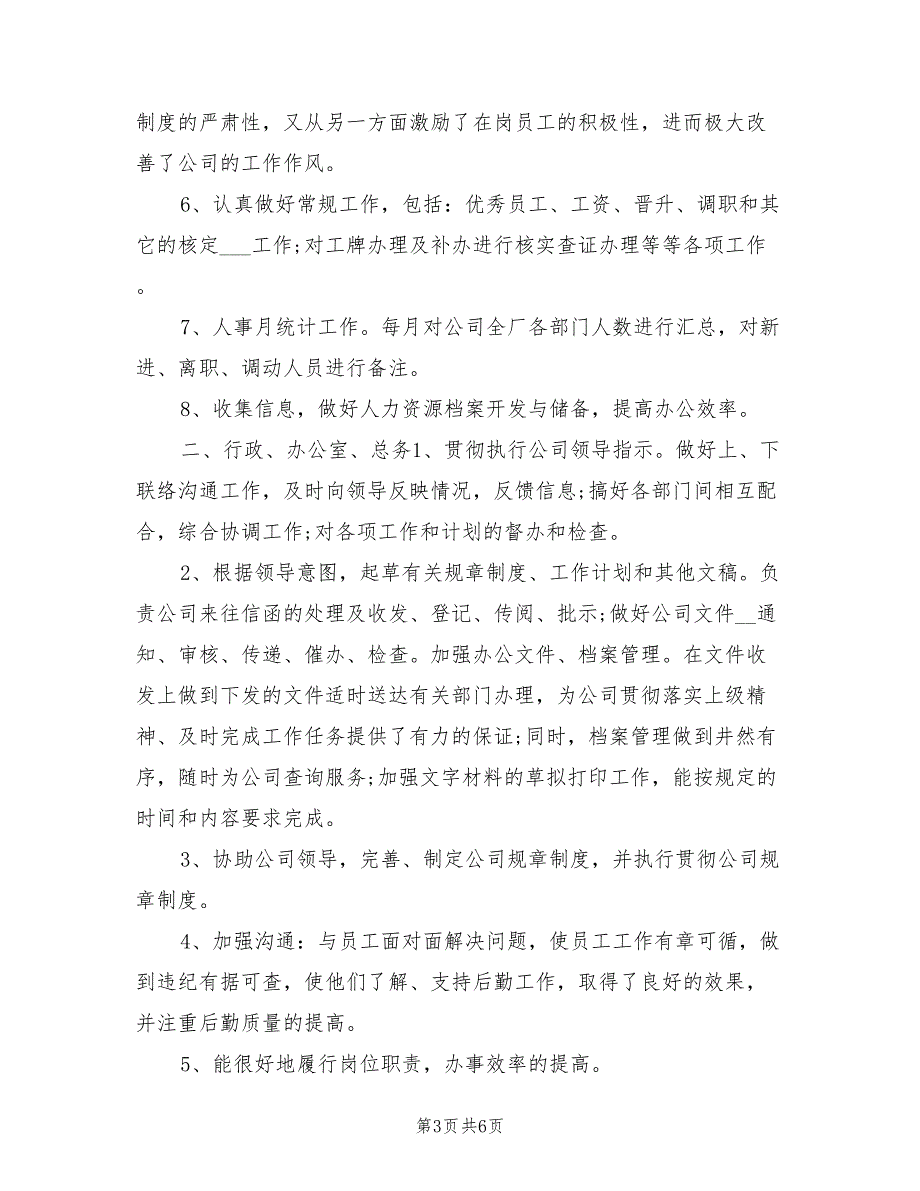 制度的严肃性，又从另一方面激励了在岗员工的积极性，进而极大改
善了公司的工作作风。
6、认真做好常规工作，包括：优秀员工、工资、晋升、调职和其
它的核定___工作;对工牌办理及补办进行核实查证办理等等各项工作
。
7、人事月统计工作。每月对公司全厂各部门人数进行汇总，对新
进、离职、调动人员进行备注。
8、收集信息，做好人力资源档案开发与储备，提高办公效率。
二、行政、办公室、总务1、贯彻执行公司领导指示。做好上、下
联络沟通工作，及时向领导反映情况，反馈信息;搞好各部门间相互配
合，综合协调工作;对各项工作和计划的督办和检查。
2、根据领导意图，起草有关规章制度、工作计划和其他文稿。负
责公司来往信函的处理及收发、登记、传阅、批示;做好公司文件__通
知、审核、传递、催办、检查。加强办公文件、档案管理。在文件收
发上做到下发的文件适时送达有关部门办理，为公司贯彻落实上级精
神、及时完成工作任务提供了有力的保证;同时，档案管理做到井然有
序，随时为公司查询服务;加强文字材料的草拟打印工作，能按规定的
时间和内容要求完成。
3、协助公司领导，完善、制定公司规章制度，并执行贯彻公司规
章制度。
4、加强沟通：与员工面对面解决问题，使员工工作有章可循，做
到违纪有据可查，使他们了解、支持后勤工作，取得了良好的效果，
并注重后勤质量的提高。
5、能很好地履行岗位职责，办事效率的提高。
第3页 共6页